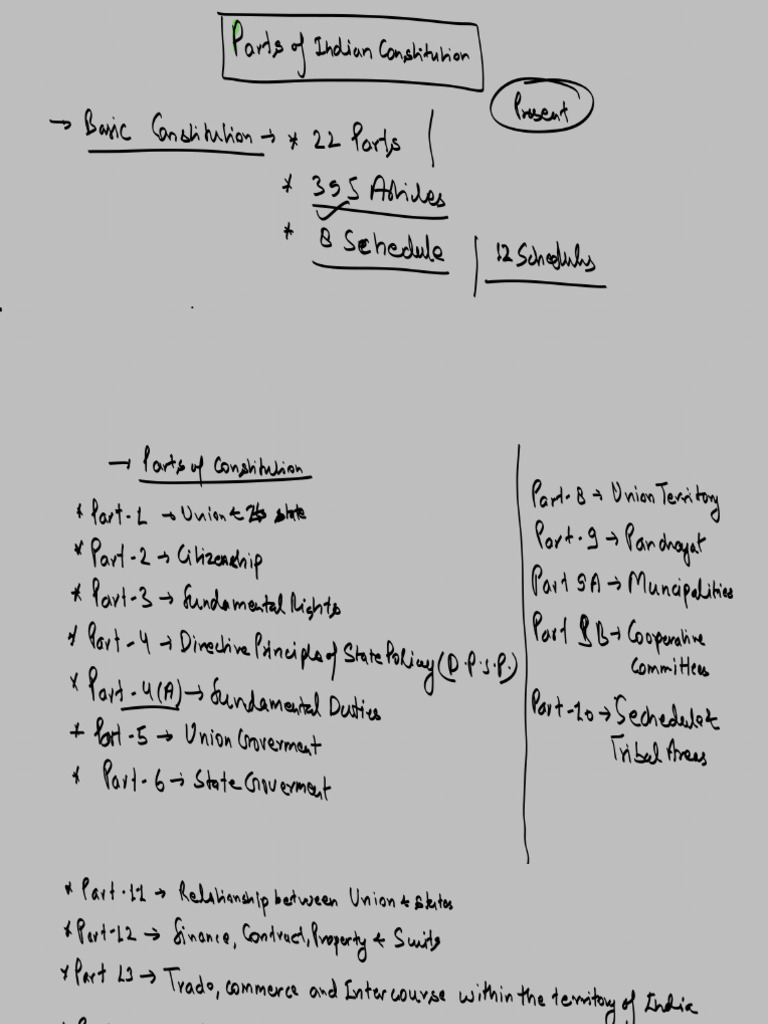 Parts of Indian Constitution
Present
→ Basic Constitution → * 22 Parts
* 395 Articles
* 8 Schedule | 12 Schedules
→ Parts of Constitution
* Part-1 → Union & state
* Part-2 → Citizenship
* Part-3 → Fundamental Rights
* Part-4 → Directive Principles of State Policy (D.P.S.P.)
* Part-4(A) → Fundamental Duties
* Part-5 → Union Goverment
* Part-6 → State Goverment
Part-8 → Union Territory
Part-9 → Panchayat
Part 9A → Muncipalities
Part 9B → Cooperative
Committees
Part-10 → Sechedule &
Tribal Areas
* Part-11 → Relationship between Union & states
* Part-12 → Finance, Contract, Property & Suits
* Part 13 → Trade, commerce and Intercourse within the territory of India